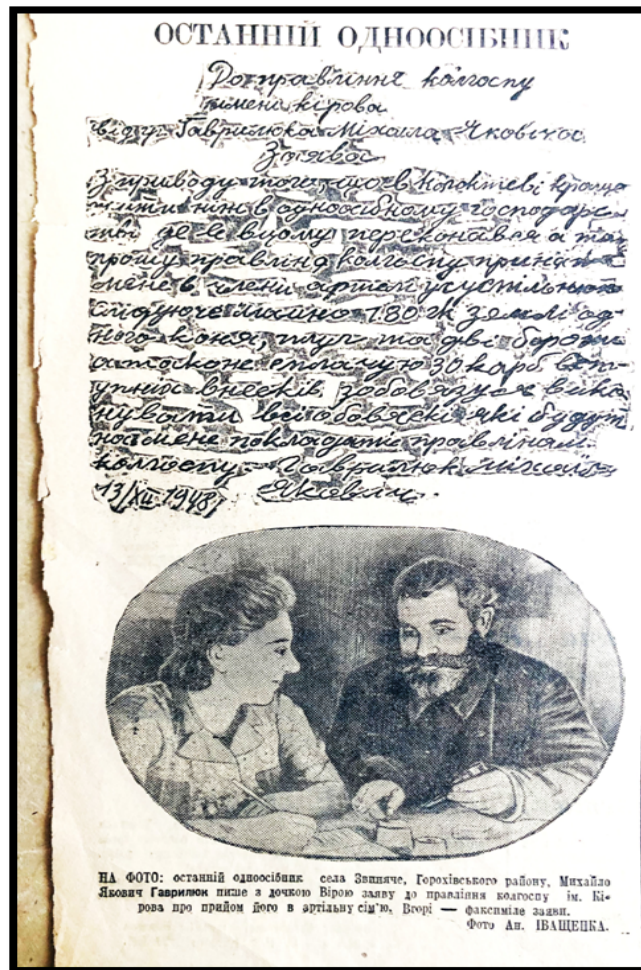 ОСТАННІЙ ОДНООСІБНИК
До правління колгоспу
імені кірова
від гр. Гаврилюка Міхаіла Яковіча
Заява
З приводу того, що в колективі краще
жити ніж в одноосібному господарс-
тві де я в цьому переконався а тому
прошу правлінд колгоспу принять
мене в члени артелі усуспільнюю
слідуюче майно 1.80 га землі од-
ного коня, плуг та дві борони
а також сплачую 30 карб. всту-
пних внесків зобовязуся вико-
нувати всі обовязкі які будут
на мене покладати правлінням
колгоспу. Гаврилюк Міхаіл
13/XII 1948 Яковліч.
НА ФОТО: останній одноосібник села Звиняче, Горохівського району, Михайло
Якович Гаврилюк пише з дочкою Вірою заяву до правління колгоспу ім. Кі-
рова про прийом його в артільну сім'ю. Вгорі — факсиміле заяви.
Фото Ан. ІВАЩЕНКА.